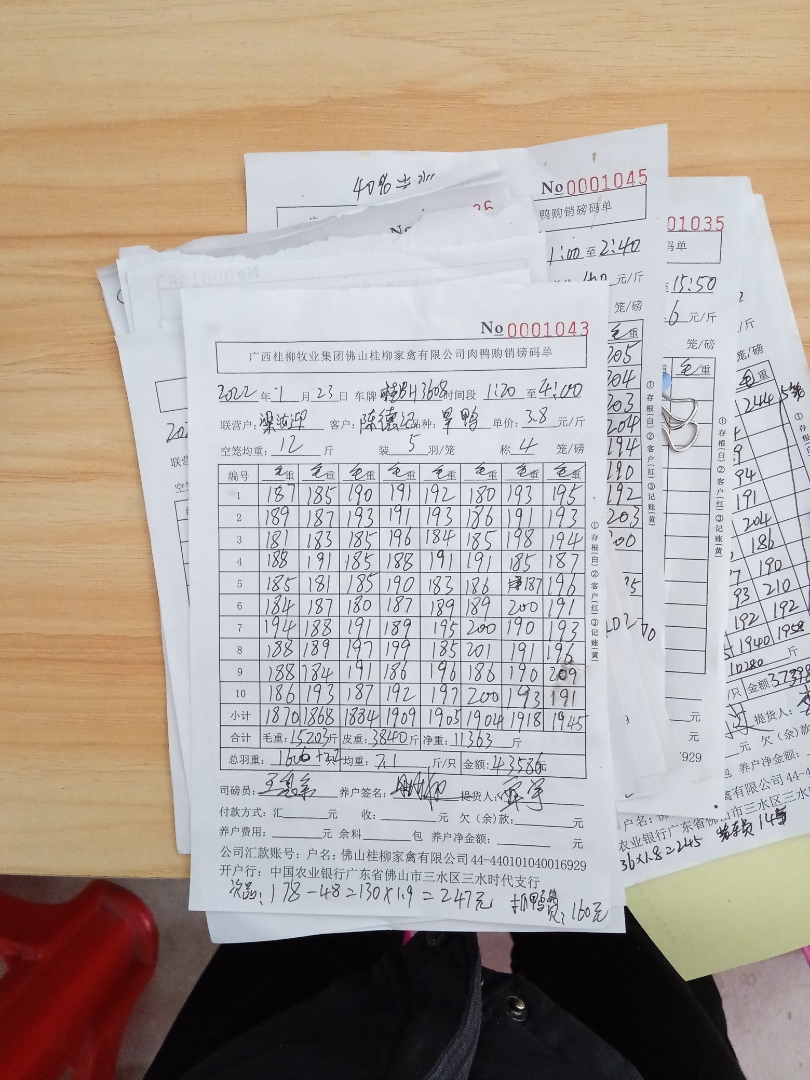 40%
No 0001045
鸭购销磅码单
1:00 至 2:40
元/斤
笼/磅
0001035
码单
至 15:50
6 元/斤
笼/磅
No 0001043
广西桂柳牧业集团佛山桂柳家禽有限公司肉鸭购销磅码单
2022 年 1 月 23 日 车牌 桂BH3608 时间段 1:20 至 4:00
联营户: 客户: 陈德记 品种: 旱鸭 单价: 3.8 元/斤
空笼均重: 12 斤 装 5 羽/笼 称 4 笼/磅
编号 毛重 毛重 毛重 毛重 毛重 毛重 毛重 毛重
1 187 185 190 191 192 180 193 195
2 189 187 193 191 193 186 191 193
3 181 183 185 196 184 185 198 194
4 188 191 185 188 191 191 185 187
5 185 181 185 190 183 186 187 196
6 184 187 180 187 189 189 200 191
7 194 188 191 189 195 200 190 193
8 188 189 197 199 185 201 191 196
9 188 184 191 186 196 186 190 209
10 186 193 187 192 197 200 193 191
小计 1870 1868 1884 1909 1905 1904 1918 1945
合计 毛重: 15203 斤 皮重: 3840 斤 净重: 11363 斤
总羽重: 均重: 7.1 斤/只 金额: 43586 元
司磅员: 养户签名: 提货人:
付款方式: 汇 元 收: 元 欠(余)款: 元
养户费用: 元 余料 包 养户净金额: 元
公司汇款账号: 户名: 佛山桂柳家禽有限公司 44-440101040016929
开户行: 中国农业银行广东省佛山市三水区三水时代支行
次品: 178-48=130×1.9=247元 抓鸭费: 160元
①存根(白)②客户(红)③记账(黄)
毛重
205
204
203
204
194
190
192
203
200
①存根(白)②客户(红)③记账(黄)
毛重
①存根(白)②客户(红)③记账(黄)
重
244
94
191
204
186
190
93 210
192 192
1940 1958
10280 斤
/只 金额
提货人:
元 欠(余)款
包 养户净金额:
有限公司 44-44
农业银行广东省佛山市三水区三水
36×1.8=245